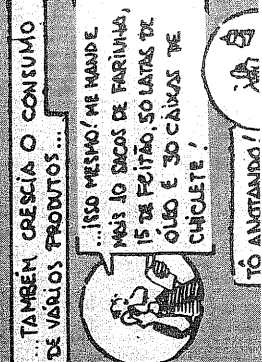 ...TAMBÉM CRESCIA O CONSUMO
DE VÁRIOS PRODUTOS...
...ISSO MESMO! ME MANDE
MAIS 10 SACOS DE FARINHA,
15 DE FEIJÃO, 50 LATAS DE
ÓLEO E 30 CAIXAS DE
CHICLETE!
TÔ ANOTANDO!